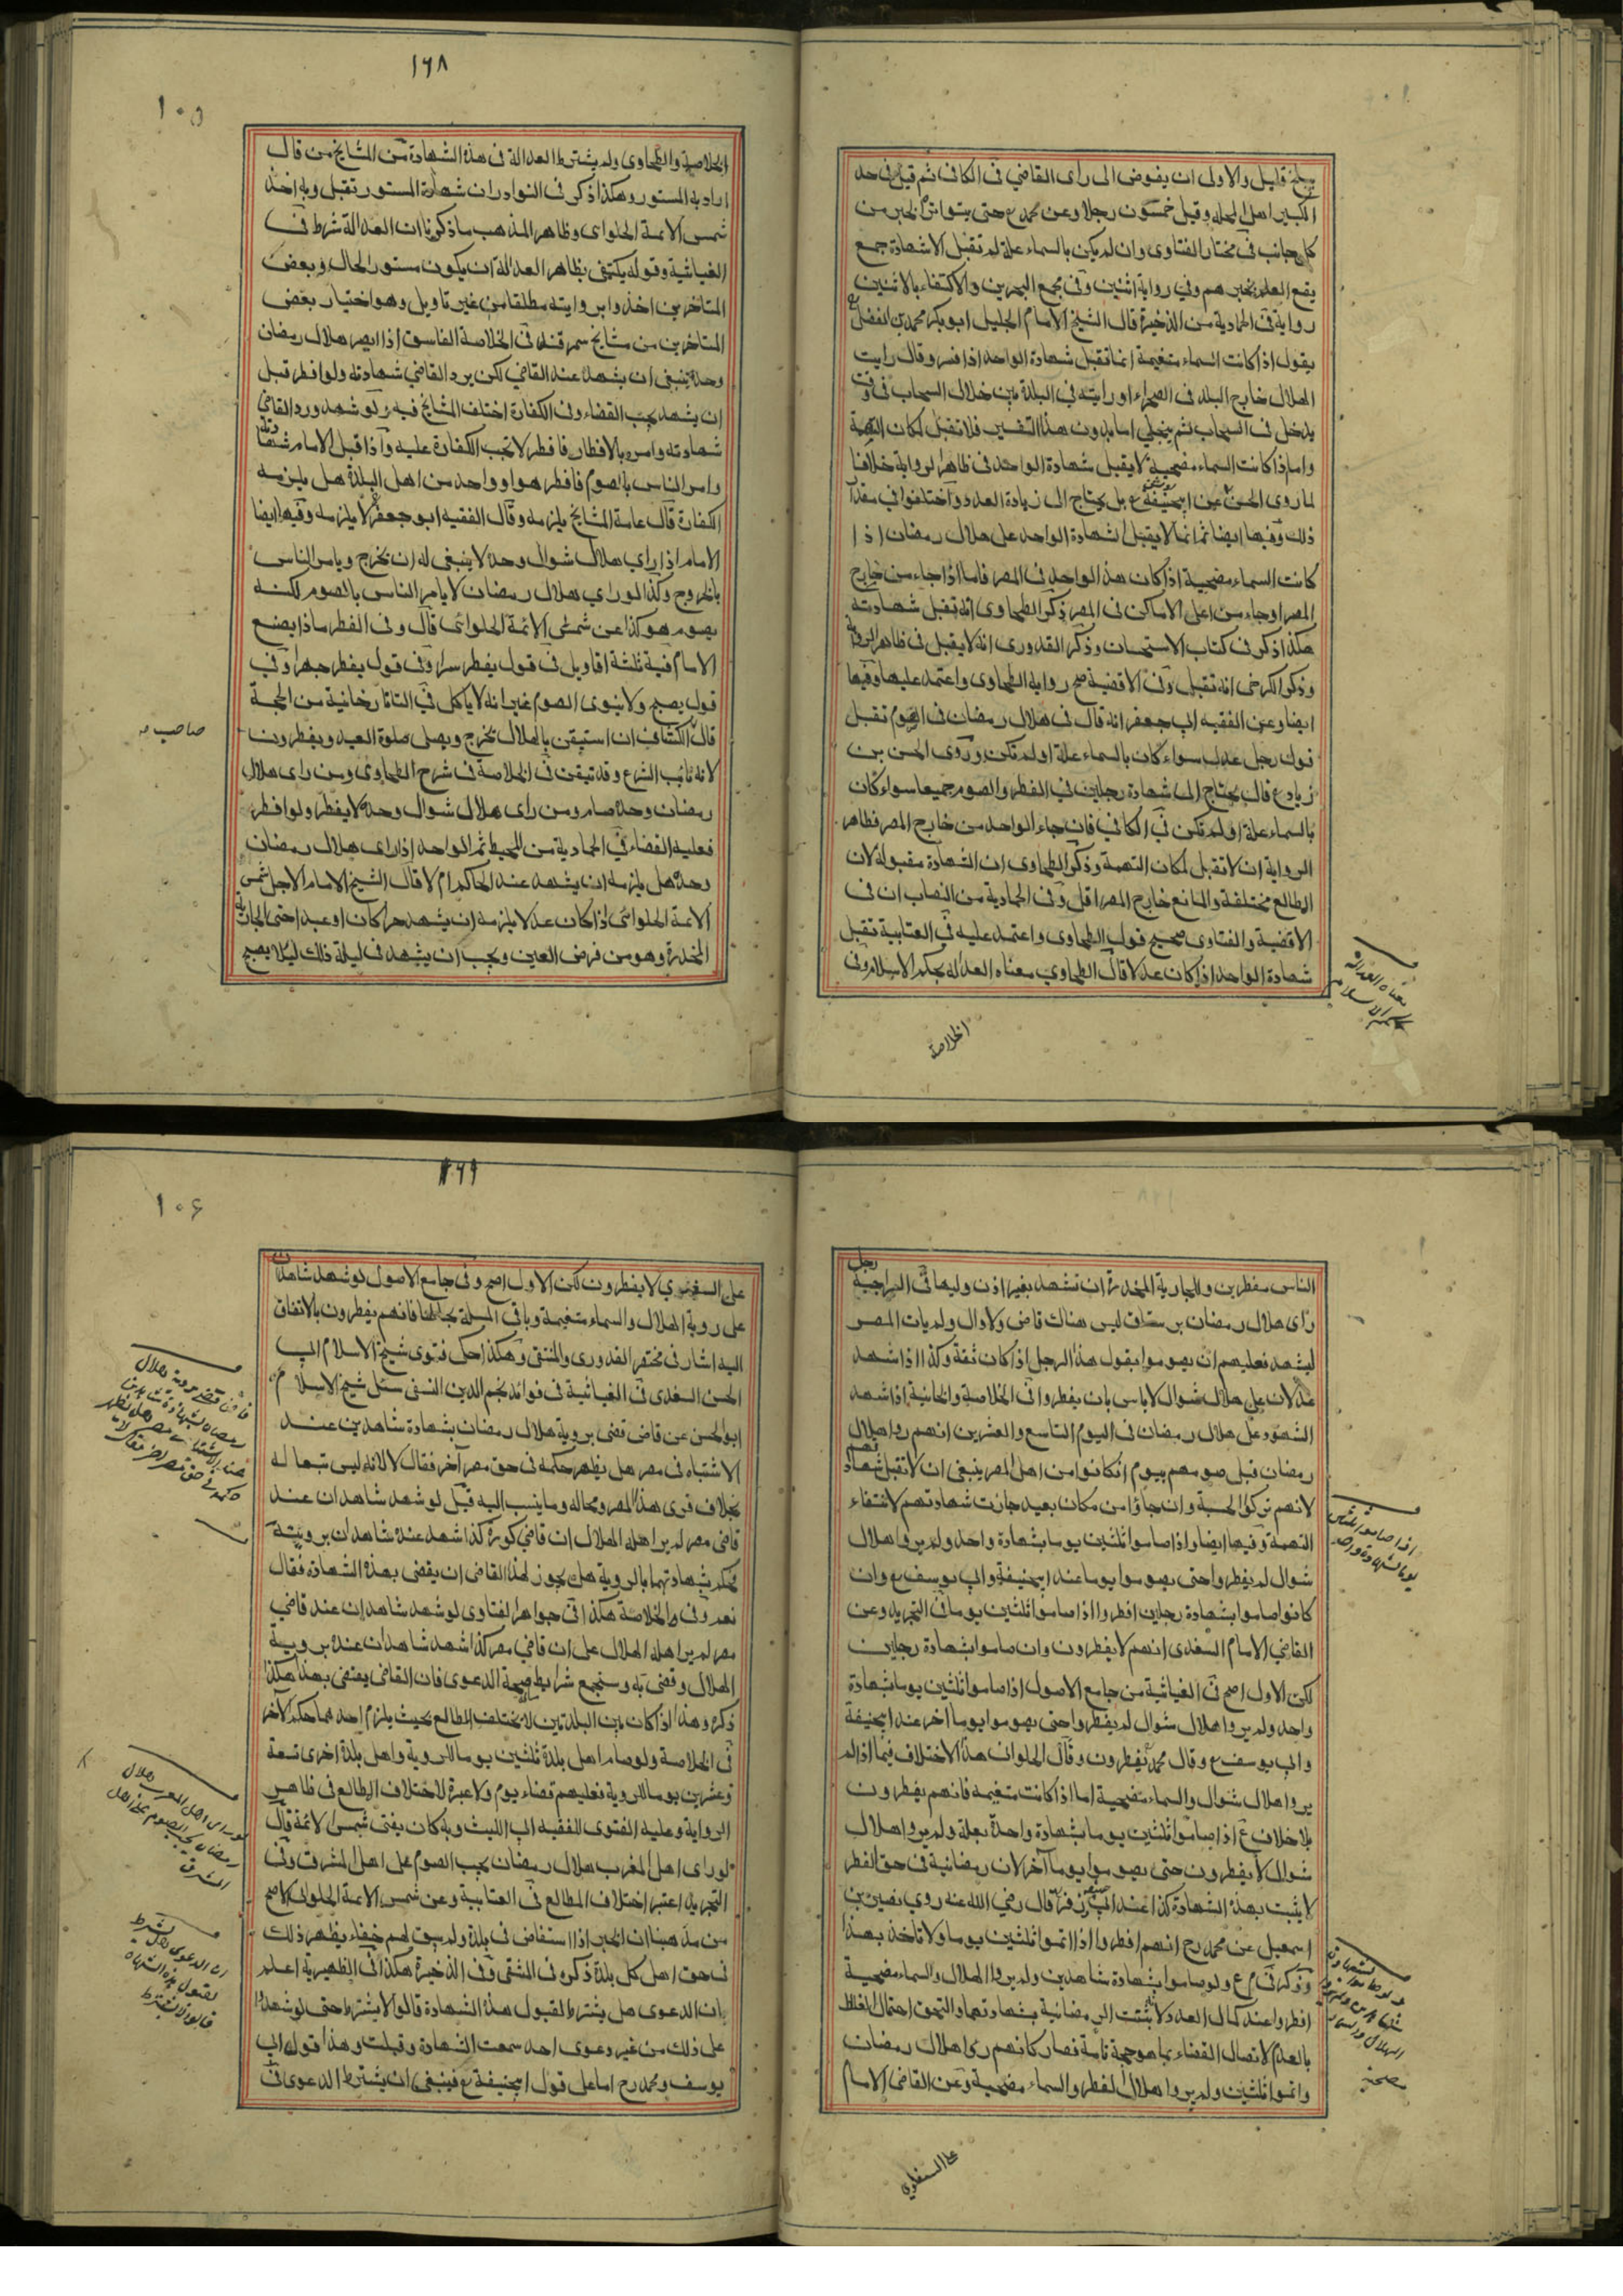 ببلخ قليل والاولى ان يفوض الى راى القاضي فى الكافى ثم قيل فى حد
الكبير اهل المحله وقيل خمسون رجلا وعن محمد ع حتى يتواتر الخبر من
كل جانب فى مختار الفتاوى وان لم يكن بالسماء علة لم تقبل الا شهادة جمع
يقع العلم بخبرهم وفي رواية اثنين وفى مجمع البحرين والاكتفاء بالاثنين
رواية فى الحمادية من الذخيرة قال الشيخ الامام الجليل ابو بكر محمد بن الفضل
يقول اذا كانت السماء متغيمة انما تقبل شهادة الواحد اذا فسر وقال رايت
الهلال خارج البلد فى الصحراء او رايته في البلدة بين خلال السحاب فى وقت
يدخل فى السحاب ثم ينجلي اما بدون هذا التفسير فلا تقبل لمكان التهمة
واما اذا كانت السماء مضحية لا يقبل شهادة الواحد فى ظاهر الرواية خلافا
لما روى الحسن عن ابيحنيفة ع بل يحتاج الى زيادة العدد واختلفوا في مقدار
ذلك وفيها ايضا ثم انما لا يقبل شهادة الواحد على هلال رمضان اذا
كانت السماء مضحية اذا كان هذ الواحد فى المصر فاما اذا جاء من خارج
المصر او جاء من اعلى الاماكن فى المصر ذكر الطحاوى انه تقبل شهادته
هكذا ذكر فى كتاب الاستحسان وذكر القدورى انه لا يقبل فى ظاهر الرواية
وذكر الكرخى انه تقبل وفى الاقضية صح رواية الطحاوى واعتمد عليها وفيها
ايضا وعن الفقيه ابي جعفر انه قال فى هلال رمضان فى الصوم تقبل
قول رجل عدل سواء كان بالسماء علة او لم تكن وروى الحسن بن
زياد ع قال يحتاج الى شهادة رجلين في الفطر والصوم جميعا سواء كان
بالسماء علة او لم تكن في الكافي فان جاء الواحد من خارج المصر فظاهر
الرواية ان لا تقبل لمكان التهمة وذكر الطحاوى ان الشهادة مقبولة لان
الطالع مختلفة والمانع خارج المصر اقل وفى الحمادية من النصاب ان فى
الاقضية والفتاوى صحيح قول الطحاوى واعتمد عليه في العتابية تقبل
شهادة الواحد اذا كان عدلا قال الطحاوي معناه العدالة بحكم الاسلام وفى
معناه العدالة
بحكم الاسلام
الخلاصة
١٦٨
١٠٥
الخلاصة والطحاوى ولم يشترط العدالة فى هذه الشهادة من المشايخ من قال
اراد به المستور وهكذا ذكر فى النوادر ان شهادة المستور تقبل وبه اخذ
شمس الائمة الحلواى وظاهر المذهب ما ذكرنا ان العدالة شرط فى
الغياثية وقوله يكتفي بظاهر العدالة ان يكون مستور الحال وبعض
المتاخرين اخذوا بروايته مطلقا من غير تاويل وهو اختيار بعض
المتاخرين من مشايخ سمرقند فى الخلاصة الفاسق اذا ابصر هلال رمضان
وحده ينبغى ان يشهد عند القاضي لكن يرد القاضي شهادته ولو افطر قبل
ان يشهد يجب القضاء وفى الكفارة اختلف المشايخ فيه ولو شهد ورد القاضي
شهادته وامره بالافطار فافطر لا تجب الكفارة عليه واذا قبل الامام شهادته
وامر الناس بالصوم فافطر هو او واحد من اهل البلدة هل يلزمه
الكفارة قال عامة المشايخ يلزمه وقال الفقيه ابو جعفر لا يلزمه وفيها ايضا
الامام اذا راى هلال شوال وحده لا ينبغي له ان يخرج ويامر الناس
بالخروج وكذا لو راى هلال رمضان لا يامر الناس بالصوم لكنه
يصوم هو كذا عن شمس الائمة الحلوائى قال وفى الفطر ماذا يصنع
الامام فيه ثلثة اقاويل فى قول يفطر سرا وفى قول يفطر جهرا وفي
قول يصبح ولا ينوى الصوم غير انه لا ياكل في التاتارخانية من الحجة
قال الكشاف ان استيقن بالهلال يخرج ويصلى صلوة العيد ويفطرون
صاحب
لانه نائب الشرع وقد تيقن فى الخلاصة فى شرح الطحاوى ومن راى هلال
رمضان وحده صام ومن راى هلال شوال وحده لا يفطر ولو افطر
فعليه القضاء في الحمادية من المحيط ثم الواحد اذا راى هلال رمضان
وحده هل يلزمه ان يشهد عند الحاكم ام لا قال الشيخ الامام الاجل شمس
الائمة الحلوائى اذا كان عدلا يلزمه ان يشهد حرا كان او عبدا حتى الجارية
المخدرة وهو من فرض العين ويجب ان يشهد فى ليلة ذلك ليلا يصبح
رجل
الناس مفطرين وللجارية المخدرة ان تشهد بغير اذن وليها في السراجية
راى هلال رمضان برستاق ليس هناك قاض ولا وال ولم يات المصر
ليشهد فعليهم ان يصوموا بقول هذ الرجل اذا كان ثقة وكذا اذا شهد
عدلان على هلال شوال لا باس بان يفطروا فى الخلاصة والخانية اذا شهد
الشهود على هلال رمضان فى اليوم التاسع والعشرين انهم راوا هلال
رمضان قبل صومهم بيوم ان كانوا من اهل المصر ينبغى ان لا تقبل شهادتهم
لانهم تركوا الحسبة وان جاؤا من مكان بعيد جازت شهادتهم لانتفاء
التهمة وفيها ايضا واذا صاموا ثلثين يوما بشهادة واحد ولم يروا هلال
شوال لم يفطروا حتى يصوموا يوما عند ابيحنيفة وابي يوسف ع وان
كانوا صاموا بشهادة رجلين افطروا اذا صاموا ثلثين يوما فى التجريد وعن
القاضي الامام السغدى انهم لا يفطرون وان صاموا بشهادة رجلين
لكن الاول اصح فى الغياثية من جامع الاصول اذا صاموا ثلثين يوما بشهادة
واحد ولم يروا هلال شوال لم يفطروا حتى يصوموا يوما اخر عند ابيحنيفة
وابي يوسف ع وقال محمد يفطرون وقال الحلوانى هذا الاختلاف فيما اذا لم
يروا هلال شوال والسماء مضحية اما اذا كانت متغيمه فانهم يفطرون
بلا خلاف ع اذا صاموا ثلثين يوما بشهادة واحدة بعلة ولم يروا هلال
شوال لا يفطرون حتى يصوموا يوما آخر لان رمضانية فى حق الفطر
لا يثبت بهذه الشهادة كذا عند ابى زفر قال رضي الله عنه روي نصير بن
اسمعيل عن محمد رح انهم افطروا اذا اتموا ثلثين يوما ولا تاخذ بهذا
وذكر فى م ع ولو صاموا بشهادة شاهدين ولم يروا الهلال والسماء مضحية
افطروا عند كمال العدد لا يثبت الرمضانية بشهادتهما والتحق احتمال الغلط
بالعدم لاتصال القضاء بما هو حجة تامة فصار كانهم راى هلال رمضان
واتموا ثلثين ولم يروا هلال الفطر والسماء مضحية وعن القاضى الامام
اذا صاموا ثلثين
يوما بشهادة واحد
على السغدي
١٠٦
على السغدي لا يفطرون لكن الاول اصح وفى جامع الاصول لو شهد شاهدان
على روية الهلال والسماء متغيمة وباقي المسئلة بحالها فانهم يفطرون بالاتفاق
اليه اشار فى مختصر القدورى والمنتقى وهكذا حكى فتوى شيخ الاسلام ابي
الحسن السغدى فى الغياثية فى فوائد نجم الدين النسفى سئل شيخ الاسلام
ابو الحسن عن قاض قضى بروية هلال رمضان بشهادة شاهدين عند
الاشتباه فى مصر هل يظهر حكمه فى حق مصر آخر فقال لا لانه ليس تبعا له
بخلاف قرى هذا المصر ومحاله وما ينسب اليه قيل لو شهد شاهدان عند
قاضى مصر لم ير اهله الهلال ان قاضي كورة كذا شهد عنده شاهدان بروئيته
حكم بشهادتهما بالروية هل يجوز لهذا القاضى ان يقضى بهذه الشهادة فقال
نعم وفى الخلاصة هكذا فى جواهر الفتاوى لو شهد شاهدان عند قاضي
مصر لم ير اهله الهلال على ان قاضي مصر كذا شهد شاهدان عنده بروية
الهلال وقضى به وستجمع شرايط صحة الدعوى فان القاضى يقضى بهذا هكذا
ذكره وهذا اذا كان بين البلدتين لا يختلف الطالع بحيث يلزم احدهما حكم الآخر
فى الخلاصة ولو صام اهل بلدة ثلثين يوما للروية واهل بلدة اخرى تسعة
وعشرين يوما للروية فعليهم قضاء يوم ولا عبرة لاختلاف المطالع فى ظاهر
الرواية وعليه الفتوى للفقيه ابي الليث وبه كان يفتى شمس الائمة قال
لو راى اهل المغرب هلال رمضان يجب الصوم على اهل المشرق وفى
التجريد اعتبر اختلاف المطالع فى العتابية وعن شمس الائمة الحلوانى الاصح
من مذهبنا ان الخبر اذا استفاض فى بلدة ولم يبق لهم خفاء يظهر ذلك
فى حق اهل كل بلدة ذكره فى المنتقى وفى الذخيرة هكذا فى الظهيرية اعلم
ان الدعوى هل يشترط لقبول هذه الشهادة قالوا لا يشترط حتى لو شهدوا
على ذلك من غير دعوى احد سمعت الشهادة وقبلت وهذا قول ابي
يوسف ومحمد رح اما على قول ابيحنيفة ع فينبغى ان يشترط الدعوى فى
لو راى اهل المغرب هلال
رمضان يجب الصوم على اهل
المشرق
ان الدعوى هل يشترط
لقبول هذه الشهادة
قالوا لا يشترط